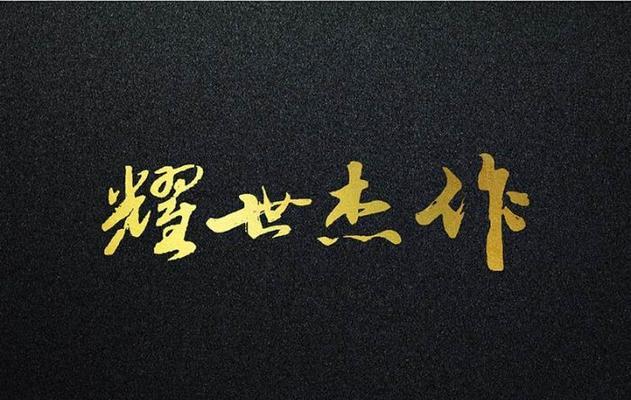 耀世杰作